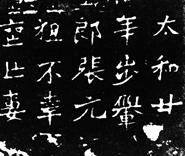 太和廿
年步轝
郎張元
祖不幸
喪亡妻